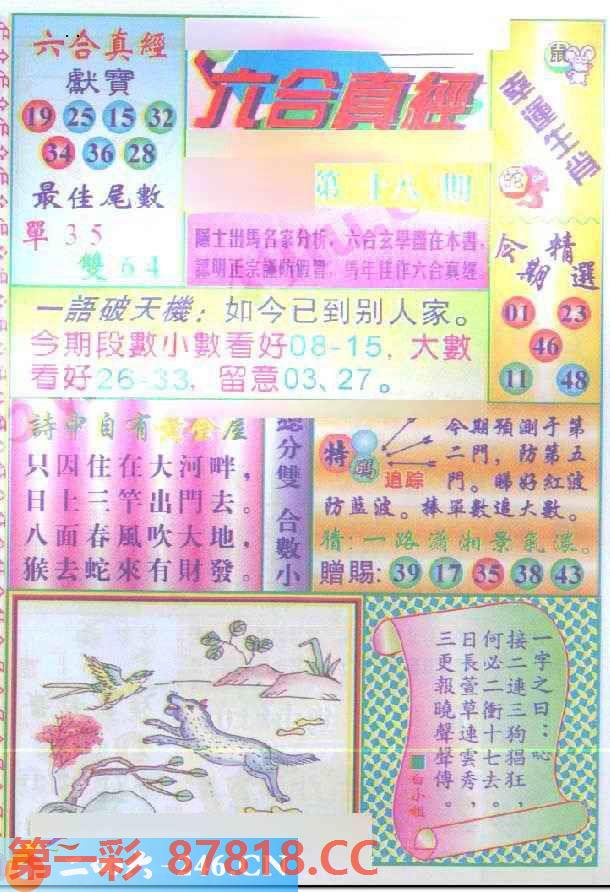 六合真經
獻寶
19 25 15 32
34 36 28
最佳尾數
單 3 5
雙 6 4
六合真經
第十八期
隱士出馬名家分析，六合玄學盡在本書，
認明正宗謹防假冒，馬年佳作六合真經。
鼠
幸運生肖
蛇
今期精選
01 23
46
11 48
一語破天機：如今已到别人家。
今期段數小數看好08-15，大數
看好26-33，留意03、27。
詩中自有黃金屋
只因住在大河畔，
日上三竿出門去。
八面春風吹大地，
猴去蛇來有財發。
總分雙 合數小
特碼
追踪
今期預測于第
二門，防第五
門。睇好紅波
防藍波。捧單數追大數。
猜：一路瀟湘景氣濃。
贈賜：39 17 35 38 43
一字之曰：吣
接二連三狗猖狂，
何必二衝十七去。
日長萱草連雲秀，
三更報曉聲聲傳。
白小姐
第一彩 87818.CC
246.CN